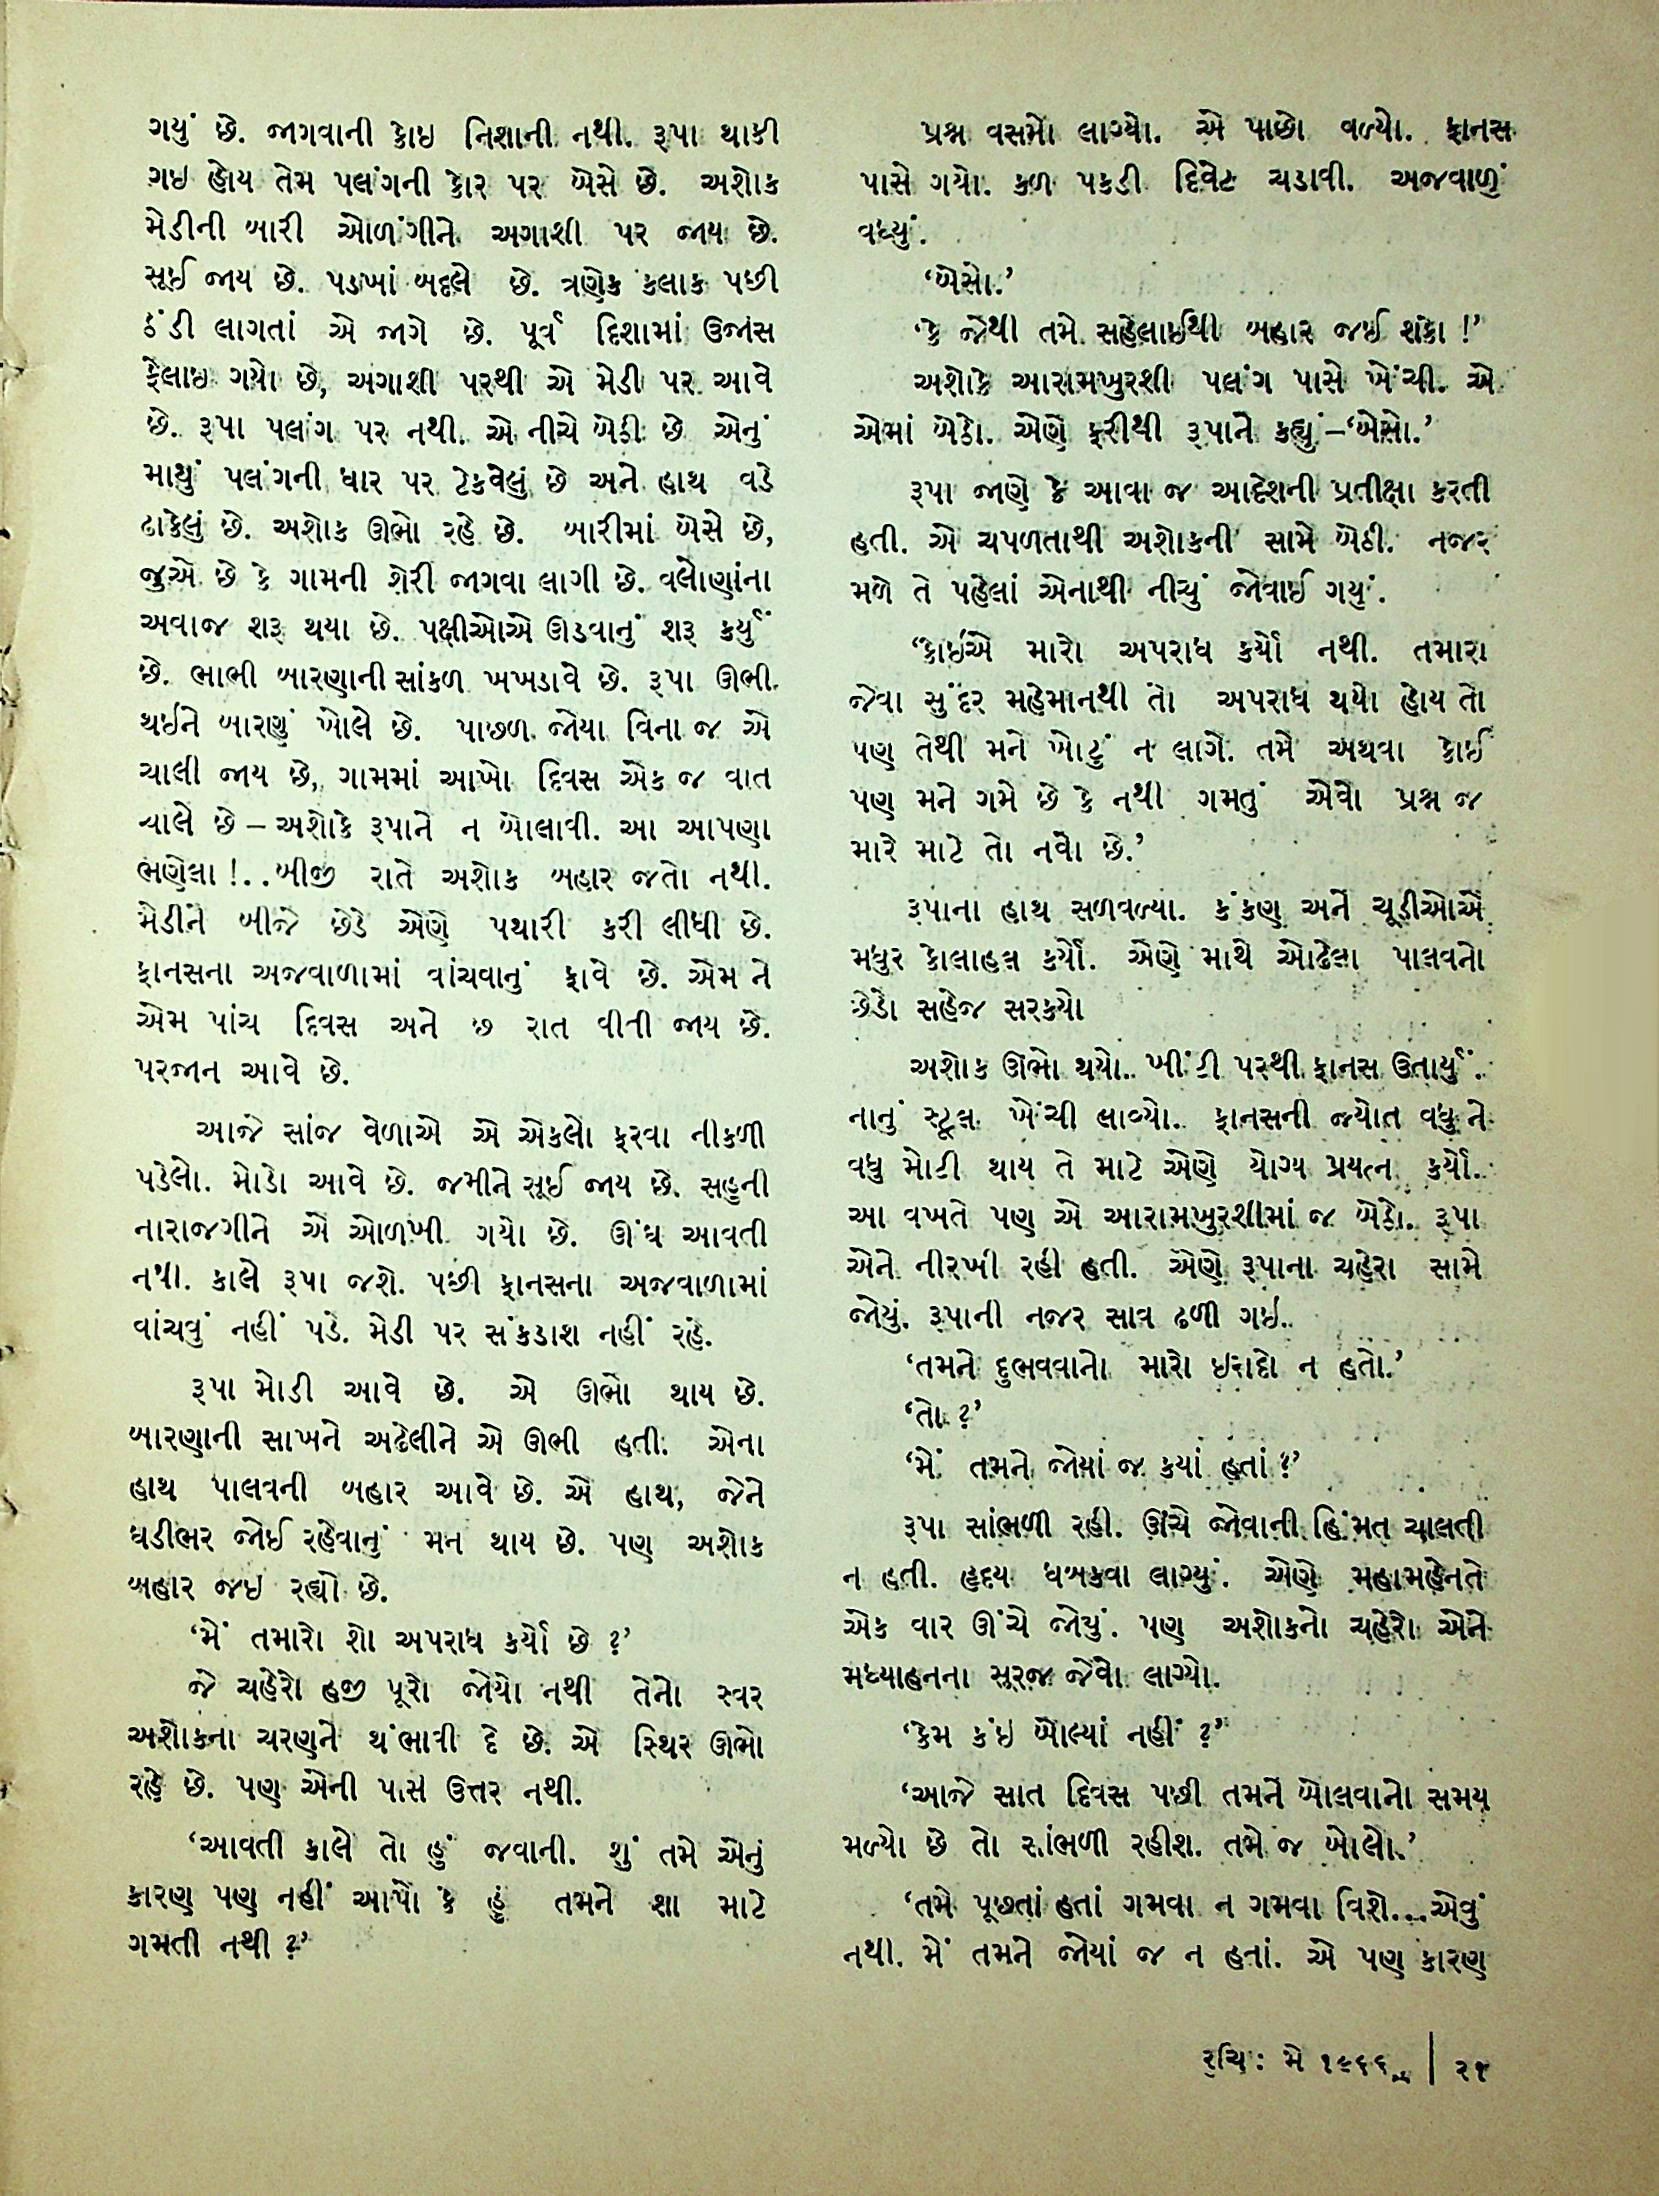 ગયું છે. જાગવાની કોઇ નિશાની નથી. રૂપા થાકી
ગઇ હોય તેમ પલંગની કોર પર બેસે છે. અશોક
મેડીની બારી ઓળંગીને અગાશી પર જાય છે.
સૂઈ જાય છે. પડખાં બદલે છે. ત્રણેક કલાક પછી
ઠંડી લાગતાં એ જાગે છે. પૂર્વ દિશામાં ઉજાસ
ફેલાઇ ગયો છે, અગાશી પરથી એ મેડી પર આવે
છે. રૂપા પલંગ પર નથી. એ નીચે બેઠી છે એનું
માથું પલંગની ધાર પર ટેકવેલું છે અને હાથ વડે
ઢાકેલું છે. અશોક ઊભો રહે છે. બારીમાં બેસે છે,
જુએ છે કે ગામની શેરી જાગવા લાગી છે. વલોણાંના
અવાજ શરૂ થયા છે. પક્ષીઓએ ઊડવાનું શરૂ કર્યું
છે. ભાભી બારણાની સાંકળ ખખડાવે છે. રૂપા ઊભી
થઈને બારણું ખોલે છે. પાછળ જોયા વિના જ એ
ચાલી જાય છે, ગામમાં આખો દિવસ એક જ વાત
ચાલે છે – અશોકે રૂપાને ન બોલાવી. આ આપણા
ભણેલા !..બીજી રાતે અશોક બહાર જતો નથી.
મેડીને બીજે છેડે એણે પથારી કરી લીધી છે.
ફાનસના અજવાળામાં વાંચવાનું ફાવે છે. એમ ને
એમ પાંચ દિવસ અને છ રાત વીતી જાય છે.
પરજાન આવે છે.
આજે સાંજ વેળાએ એ એકલો ફરવા નીકળી
પડેલો. મોડો આવે છે. જમીને સૂઈ જાય છે. સહુની
નારાજગીને એ ઓળખી ગયો છે. ઊંઘ આવતી
નથી. કાલે રૂપા જશે. પછી ફાનસના અજવાળામાં
વાંચવું નહીં પડે. મેડી પર સંકડાશ નહીં રહે.
રૂપા મોડી આવે છે. એ ઊભો થાય છે.
બારણાની સાખને અઢેલીને એ ઊભી હતી. એના
હાથ પાલવની બહાર આવે છે. એ હાથ, જેને
ઘડીભર જોઈ રહેવાનું મન થાય છે. પણ અશોક
બહાર જઇ રહ્યો છે.
‘મેં તમારો શો અપરાધ કર્યો છે ?’
જે ચહેરો હજી પૂરો જોયો નથી તેનો સ્વર
અશોકના ચરણને થંભાવી દે છે. એ સ્થિર ઊભો
રહે છે. પણ એની પાસે ઉત્તર નથી.
‘આવતી કાલે તો હું જવાની. શું તમે એનું
કારણ પણ નહીં આપો કે હું તમને શા માટે
ગમતી નથી ?’
પ્રશ્ન વસમો લાગ્યો. એ પાછો વળ્યો. ફાનસ
પાસે ગયો. કળ પકડી દિવેટ ચડાવી. અજવાળું
વધ્યું.
‘બેસો.’
‘કે જેથી તમે સહેલાઈથી બહાર જઈ શકો !’
અશોકે આરામખુરશી પલંગ પાસે ખેંચી. એ
એમાં બેઠો. એણે ફરીથી રૂપાને કહ્યું –‘બેસો.’
રૂપા જાણે કે આવા જ આદેશની પ્રતીક્ષા કરતી
હતી. એ ચપળતાથી અશોકની સામે બેઠી. નજર
મળે તે પહેલાં એનાથી નીચું જોવાઈ ગયું.
‘કોઇએ મારો અપરાધ કર્યો નથી. તમારા
જેવા સુંદર મહેમાનથી તો અપરાધ થયો હોય તો
પણ તેથી મને ખોટું ન લાગે. તમે અથવા કોઈ
પણ મને ગમે છે કે નથી ગમતું એવો પ્રશ્ન જ
મારે માટે તો નવો છે.’
રૂપાના હાથ સળવળ્યા. કંકણ અને ચૂડીઓએ
મધુર કોલાહલ કર્યો. એણે માથે ઓઢેલા પાલવનો
છેડો સહેજ સરકયો
અશોક ઊભો થયો. ખીંટી પરથી ફાનસ ઉતાર્યું.
નાનું સ્ટૂલ ખેંચી લાવ્યો. ફાનસની જ્યોત વધુ ને
વધુ મોટી થાય તે માટે એણે યોગ્ય પ્રયત્ન કર્યો.
આ વખતે પણ એ આરામખુરશીમાં જ બેઠો. રૂપા
એને નીરખી રહી હતી. એણે રૂપાના ચહેરા સામે
જોયું. રૂપાની નજર સાવ ઢળી ગઇ.
‘તમને દુભવવાનો મારો ઇરાદો ન હતો.’
‘તો ?’
‘મેં તમને જોયાં જ કયાં હતાં ?’
રૂપા સાંભળી રહી. ઊંચે જોવાની હિંમત ચાલતી
ન હતી. હૃદય ધબકવા લાગ્યું. એણે મહામહેનતે
એક વાર ઊંચે જોયું. પણ અશોકનો ચહેરો એને
મધ્યાહનના સૂરજ જેવો લાગ્યો.
‘કેમ કંઇ બોલ્યાં નહીં ?’
‘આજે સાત દિવસ પછી તમને બોલવાનો સમય
મળ્યો છે તો સાંભળી રહીશ. તમે જ બોલો.’
‘તમે પૂછતાં હતાં ગમવા ન ગમવા વિશે...એવું
નથી. મેં તમને જોયાં જ ન હતાં. એ પણ કારણ
રુચિ : મે ૧૯૬૬ | ૨૧